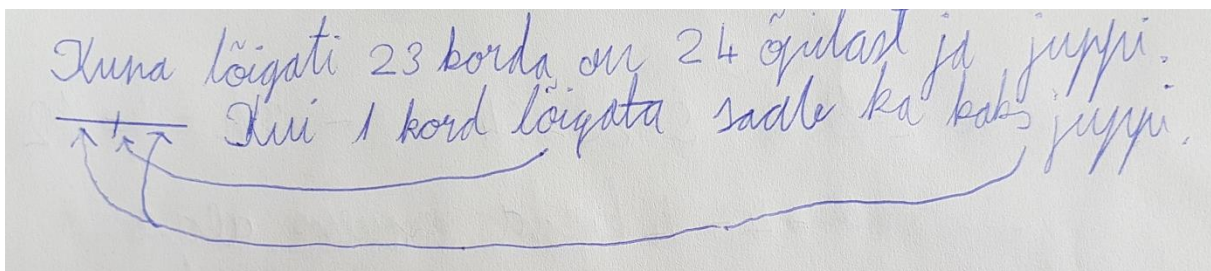 Kuna lõigati 23 korda on 24 õpilast ja juppi.
Kui 1 kord lõigata saab ka kaks juppi.